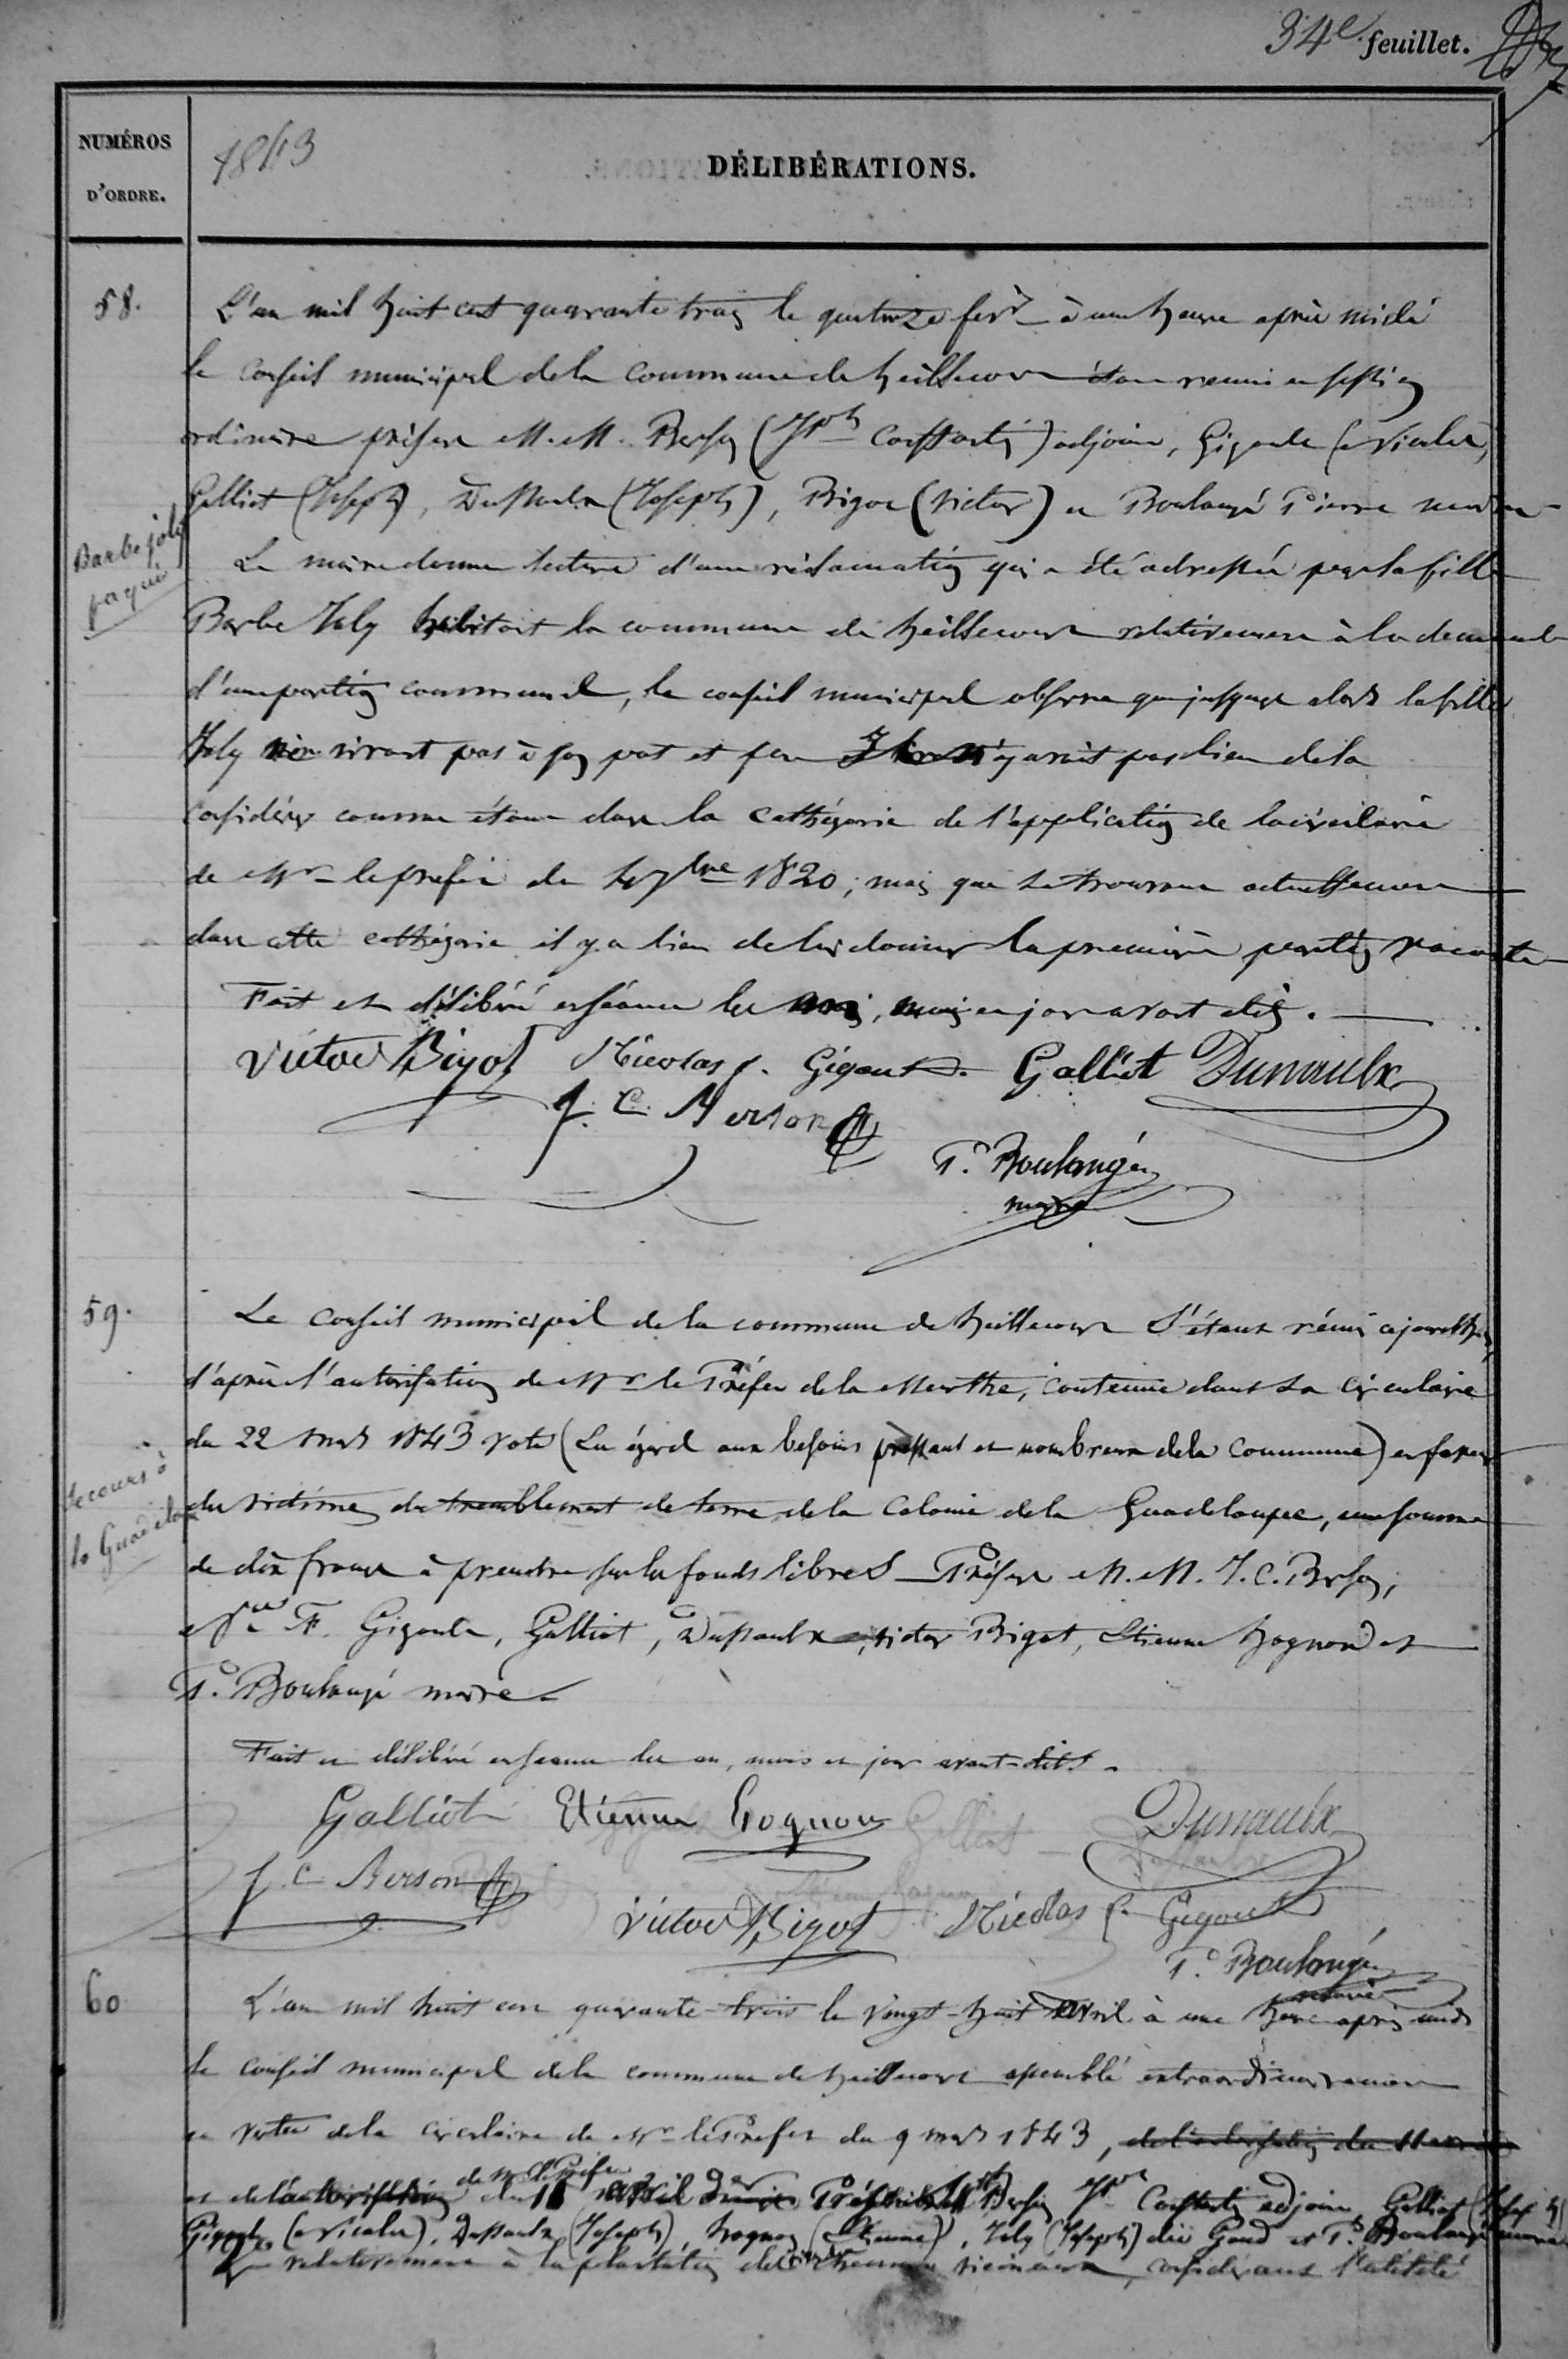 34e feuillet.
NUMÉROS
D'ORDRE.
1843
DÉLIBÉRATIONS.
58.
L'an mil huit cent quarante trois le quatorze fevr à une heure après midi
le conseil municipal de la commune de heillecourt étant reuni en session
ordinaire présens M. M. Berson (Jph Constantin) adjoint, Gigoult (Nicolas,
Galliot (Joseph), Dussaulx (Joseph), Bigot (victor) et Boulangé Pierre
Barbe joly
Le maire donne lecture d'une réclamation qui a été adressée par la fille
Barbe Joly habitant la commune de heillecourt relativement à la demande
d'une portion communale, le conseil municipal observe que jusque alors la fille
Joly ne vivant pas à son pot et feu Il n'y avait pas lieu de la
considérer comme étant dans la cathégorie de l'application de la circulaire
de Mr le préfet du 4 7bre 1820; mais que se trouvant actuellement
dans cette cathégorie il y a lieu de lui donner la première portion vacante
Fait et délibéré en séance les an, mois et jour avant dits.
Victor Bigot Nicolas f. Gigout Galliot Dussaulx
J. C. Berson
P. Boulangé
maire
59.
Le conseil municipal de la commune de heillecourt S'étant réuni ajourdhui,
d'après l'autorisation de Mr le Préfet de la Meurthe, contenue dans sa circulaire
du 22 mars 1843 vote (Eu égard aux besoins pressant et nombreux de la commune) en faveur
Secours à
la Guadeloupe
des victimes du tremblement de terre de la Colonie de la Guadeloupe, une somme
de dix francs à prendre sur les fonds libres Présens M. M. J. C. Berson,
Nas F. Gigoult, Galliot, Dussaulx, victor Bigot, Etienne hognon et
P. Boulangé maire
Fait et délibéré en séance les an, mois et jour avant-dits.
Galliot Etienne hognon Dussaulx
J. C Berson
Victor Bigot Nicolas f. Gigout
P. Boulangé
maire
60
L'an mil huit cent quarante-trois le vingt-huit avril à une heure après midi
le conseil municipal de la commune de heillecourt assemblé extraordinairement
en vertu de la circulaire de Mr le Préfet du 9 mars 1843,
de Mr le Préfet
et de l'autorisation du avril dernier Présens Berson Jph Constantin adjoint Galliot (Joseph)
Gigoult (Nicolas), Dussaulx (Joseph), hognon (Etienne), Joly (Joseph) dit Gand et P. Boulangé maire
relativement à la plantation des chemins vicinaux, considérant l'utilité